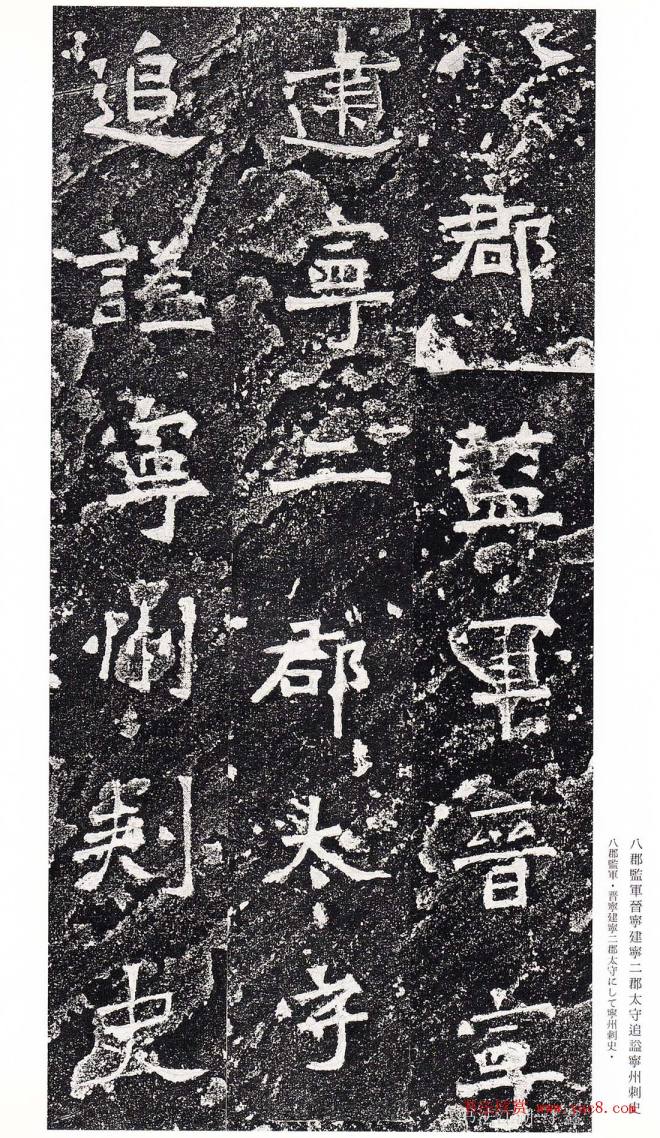 八郡監軍晉寧建寧二郡太守追謚寧州刺史
八郡監軍・晋寧建寧二郡太守にして寧州刺史・
八郡監軍晉寧
建寧二郡太守
追謚寧州刺史
书法欣赏 www.yac8.com